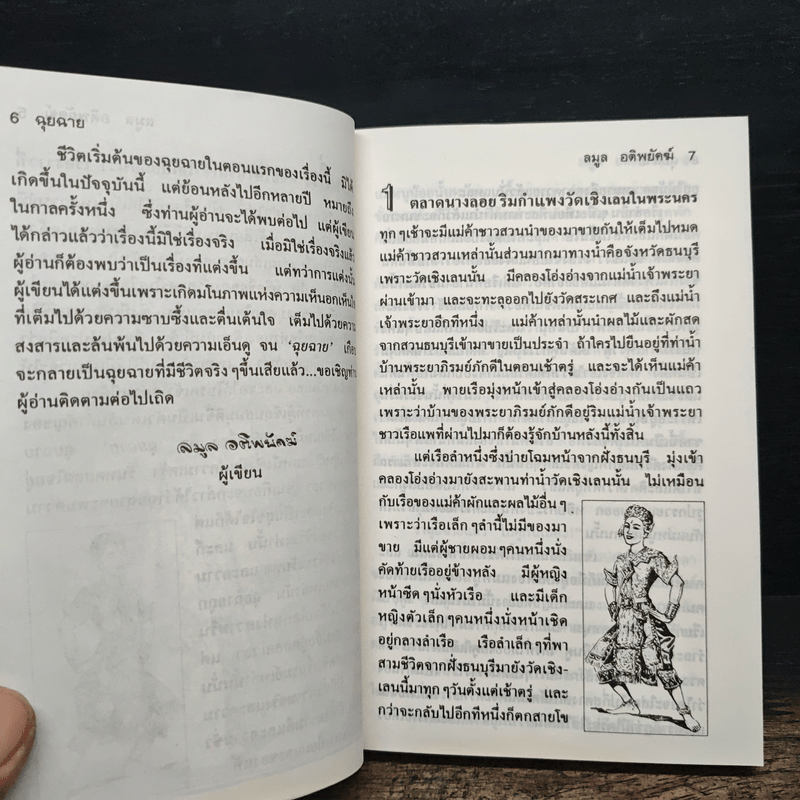 6 ฉุยฉาย
ชีวิตเริ่มต้นของฉุยฉายในตอนแรกของเรื่องนี้ มิได้
เกิดขึ้นในปัจจุบันนี้ แต่ย้อนหลังไปอีกหลายปี หมายถึง
ในกาลครั้งหนึ่ง ซึ่งท่านผู้อ่านจะได้พบต่อไป แต่ผู้เขียน
ได้กล่าวแล้วว่าเรื่องนี้มิใช่เรื่องจริง เมื่อมิใช่เรื่องจริงแล้ว
ผู้อ่านก็ต้องพบว่าเป็นเรื่องที่แต่งขึ้น แต่ทว่าการแต่งนั้น
ผู้เขียนได้แต่งขึ้นเพราะเกิดมโนภาพแห่งความเห็นอกเห็นใจ
ที่เต็มไปด้วยความซาบซึ้งและตื่นเต้นใจ เต็มไปด้วยความ
สงสารและล้นพ้นไปด้วยความเอ็นดู จน 'ฉุยฉาย' เกือบ
จะกลายเป็นฉุยฉายที่มีชีวิตจริงๆขึ้นเสียแล้ว...ขอเชิญท่าน
ผู้อ่านติดตามต่อไปเถิด
ลมูล อติพยัคฆ์
ผู้เขียน
ลมูล อติพยัคฆ์ 7
1 ตลาดนางลอย ริมกำแพงวัดเชิงเลนในพระนคร
ทุกๆเช้าจะมีแม่ค้าชาวสวนนำของมาขายกันให้เต็มไปหมด
แม่ค้าชาวสวนเหล่านั้นส่วนมากมาทางน้ำคือจังหวัดธนบุรี
เพราะวัดเชิงเลนนั้น มีคลองโอ่งอ่างจากแม่น้ำเจ้าพระยา
ผ่านเข้ามา และจะทะลุออกไปยังวัดสระเกศ และถึงแม่น้ำ
เจ้าพระยาอีกทีหนึ่ง แม่ค้าเหล่านั้นนำผลไม้และผักสด
จากสวนธนบุรีเข้ามาขายเป็นประจำ ถ้าใครไปยืนอยู่ที่ท่าน้ำ
บ้านพระยาภิรมย์ภักดีในตอนเช้าตรู่ และจะได้เห็นแม่ค้า
เหล่านั้น พายเรือมุ่งหน้าเข้าสู่คลองโอ่งอ่างกันเป็นแถว
เพราะว่าบ้านของพระยาภิรมย์ภักดีอยู่ริมแม่น้ำเจ้าพระยา
ชาวเรือแพที่ผ่านไปมาก็ต้องรู้จักบ้านหลังนี้ทั้งสิ้น
แต่เรือลำหนึ่งซึ่งบ่ายโฉมหน้าจากฝั่งธนบุรี มุ่งเข้า
คลองโอ่งอ่างมายังสะพานท่าน้ำวัดเชิงเลนนั้น ไม่เหมือน
กับเรือของแม่ค้าผักและผลไม้อื่นๆ
เพราะว่าเรือเล็กๆลำนี้ไม่มีของมา
ขาย มีแต่ผู้ชายผอมๆคนหนึ่งนั่ง
คัดท้ายเรืออยู่ข้างหลัง มีผู้หญิง
หน้าซีดๆนั่งหัวเรือ และมีเด็ก
หญิงตัวเล็กๆคนหนึ่งนั่งหน้าเชิด
อยู่กลางลำเรือ เรือลำเล็กๆที่พา
สามชีวิตจากฝั่งธนบุรีมายังวัดเชิง-
เลนนี้มาทุกๆวันตั้งแต่เช้าตรู่ และ
กว่าจะกลับไปอีกทีหนึ่งก็ตกสายโข